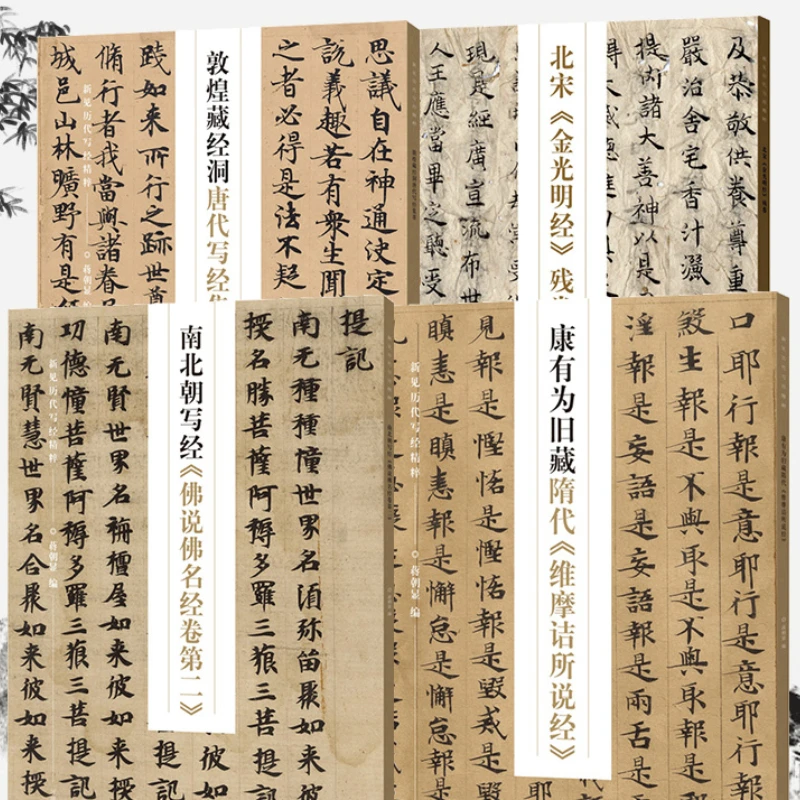 思議自在神通決定
說義趣若有衆生聞
之者必得是法不起
敦煌藏经洞唐代写经
踐如来所行之跡世尊
脩行者我當興諸眷
城邑山林曠野有是
新见历代写经精粹
蒋朝显 编
及恭敬供養尊重
嚴治舍宅香汁灑
諸大善神以是
得大威德
北宋《金光明经》残
現是經廣宣流布世
人王應當畢定聽受
提記
南无種種幢世界名湏弥留聚如来
授名勝菩薩阿耨多羅三藐三菩提記
南北朝写经《佛说佛名经卷第二》
南无賢世界名栴檀屋如来彼如来
功德幢菩薩阿耨多羅三藐三菩提記
南无賢慧世界名合聚如来彼如来授
新见历代写经精粹
蒋朝显 编
口耶行報是意耶行報是意耶行
殺生報是不與取報是不與取報是
婬報是妄語是妄語報是兩舌是
康有为旧藏隋代《维摩诘所说经》
見報是慳悋是慳悋報是毀戒是
瞋恚是瞋恚報是懈怠是懈怠報是
新见历代写经精粹
蒋朝显 编